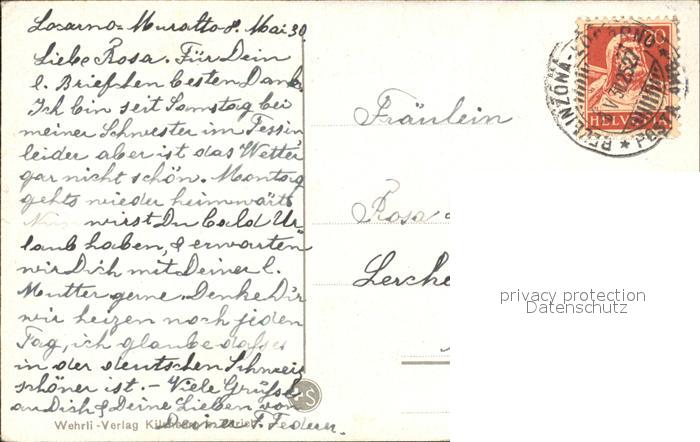 Locarno-Muralto 8. Mai 30
Liebe Rosa. Für Dein
l. Briefchen besten Dank
Ich bin seit Samstag bei
meiner Schwester im Tessin
leider aber ist das Wetter
gar nicht schön. Montag
gehts wieder heimwärts
Nun wirst Du bald Ur
laub haben, & erwarten
wir Dich mit Deiner l.
Mutter gerne. Denke Dir
wir heizen noch jeden
Tag, ich glaube dass es
in der deutschen Schweiz
schöner ist. - Viele Grüsse
an Dich & Deine Lieben von
Deiner F. Federer.
Wehrli-Verlag Kilchberg
Fräulein
Rosa
Lerche
HELVETIA
BELLINZONA-LOCARNO
privacy protection
Datenschutz